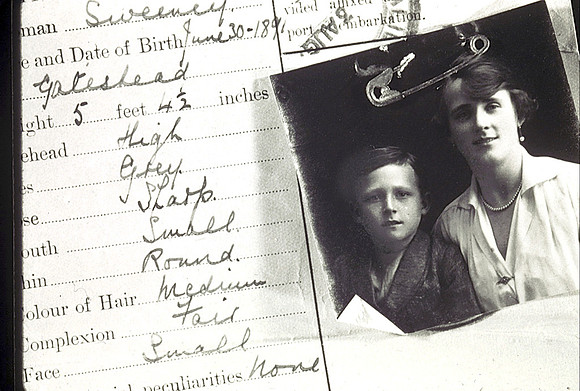 man Sweeney.
vided affixed
e and Date of Birth June 30-1891
port of embarkation.
Gateshead
ight 5 feet 4½ inches
ehead High
es Grey.
se Sharp.
outh Small.
hin Round.
olour of Hair Medium
Complexion Fair
Face Small
peculiarities None